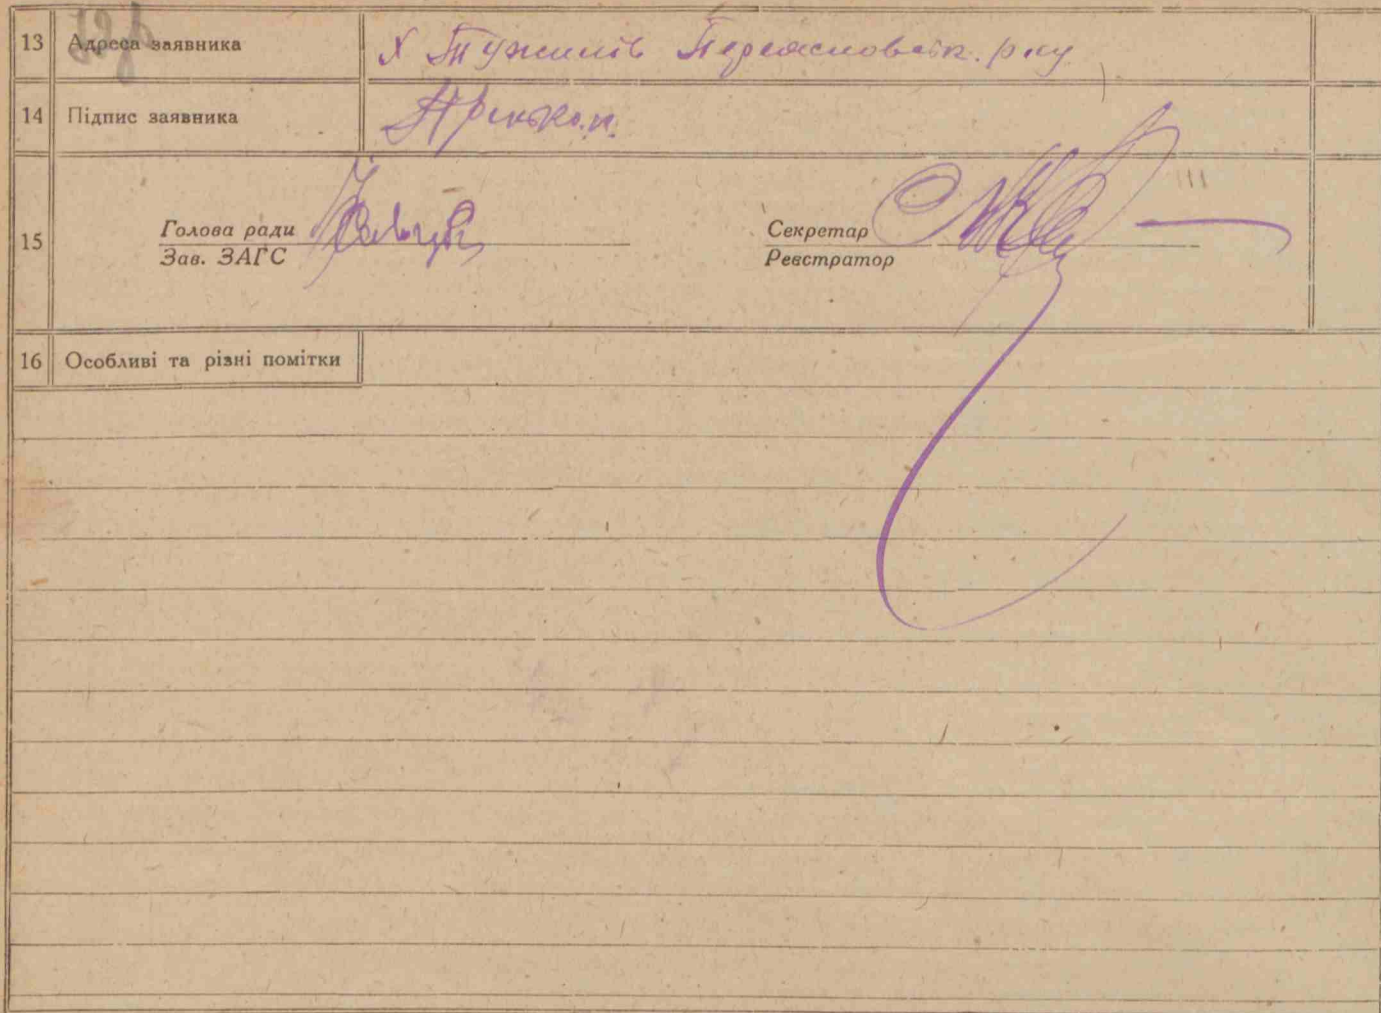 13 Адреса заявника Х Тужилів Переяславськ. р-ну
14 Підпис заявника
15 Голова ради Секретар
Зав. ЗАГС Реєстратор
16 Особливі та різні помітки